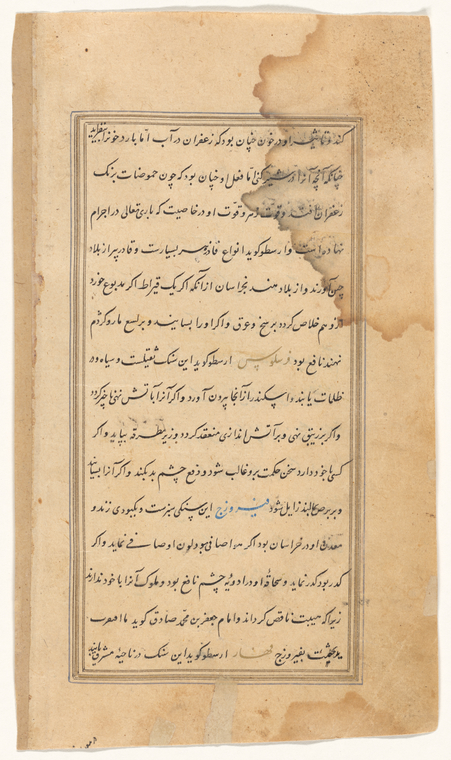 کند و تاثیر او در خون چنان بود که زعفران در آب اما بارد خونرا
چنانکه آنچه آنرا در شیر کنی اما فعل او چنان بود که چون حموضات برنک
زعفران افتد و قوت او در خاصیت که باری تعالی در اجرام
نهاده است وارسطو کوید انواع فادزهر بسیارست و فادزهر از بلاد
چین آورند و از بلاد هند بخراسان از آنکه اکر یک قیراط اکر مدبوع خورد
ازو هم خلاص کردد برسخ و عرق و اکر او را بسایند و بر لسع مار و کژدم
نهند نافع بود فرسلوس ارسطو کوید این سنک ثقیلست و سیاه و در
ظلمات یابند و اسکندر از آنجا بیرون آورد و اکر آنرا بآتش نهی
و اکر بر زیبق نهی و بر آتش اندازی منعقد کردد و زیر مطرقه بیاید و اکر
کسی با خود دارد سخن حکمت برو غالب شود و دفع چشم بد بکند و اکر آنرا بسایند
و بر برص مالند زایل شود فیروزج این سنکی سبزست و بکبودی زند و
معدن او در خراسان بود اکر هوا صافی بود لون او صافی نماید و اکر
کدر بود کدر نماید و سحاقه او در ادویه چشم نافع بود و ملوک آنرا با خود ندارند
زیرا که هیبت ناقص کرداند و امام جعفر بن محمد صادق کوید ما افتقرت
ید تختمت بفیروزج ارسطو کوید این سنک در ناحیه مشرق